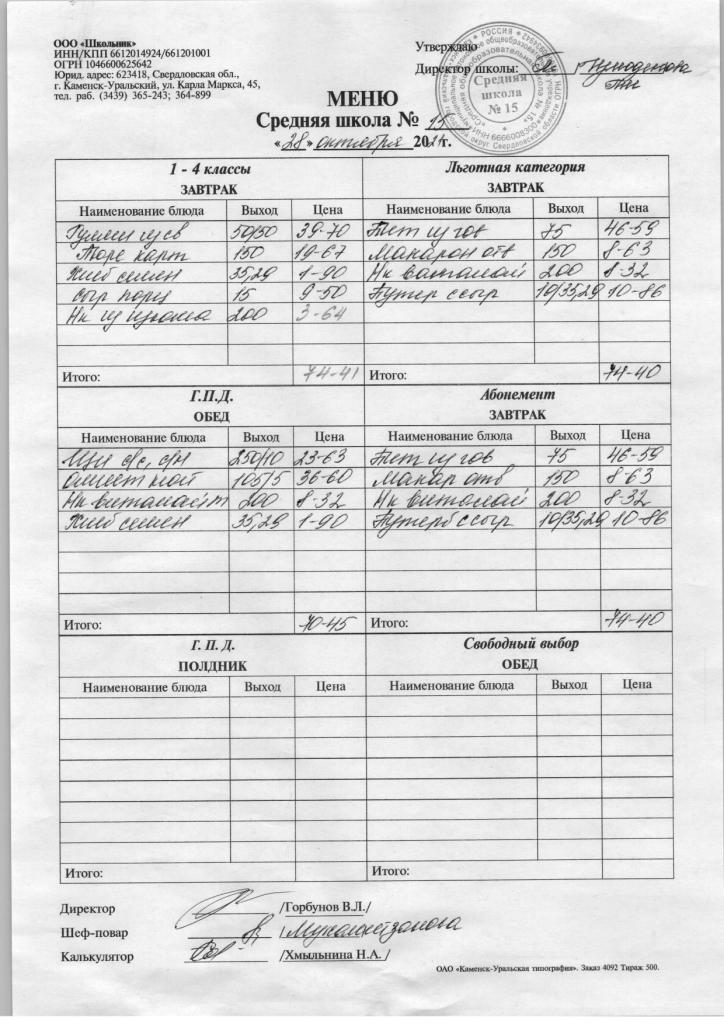 ООО «Школьник»
ИНН/КПП 6612014924/661201001
ОГРН 1046600625642
Юрид. адрес: 623418, Свердловская обл.,
г. Каменск-Уральский, ул. Карла Маркса, 45,
тел. раб. (3439) 365-243; 364-899
Утверждаю
Директор школы:
РОССИЯ
Средняя
школа
№ 15
МЕНЮ
Средняя школа № 15
«28» октября 2021г.
1 - 4 классы Льготная категория
ЗАВТРАК ЗАВТРАК
Наименование блюда Выход Цена Наименование блюда Выход Цена
Гуляш 50/50 39-70 75 46-59
Пюре карт 150 19-67 Макарон отв 150 8-63
Хлеб 35,29 1-90 Нк витамой 200 8-32
Сыр порц 15 9-50 Бутер с сыр 10/35,29 10-86
Нк из изюма 200 3-64
Итого: 74-41 Итого: 74-40
Г.П.Д. Абонемент
ОБЕД ЗАВТРАК
Наименование блюда Выход Цена Наименование блюда Выход Цена
Щи с/с, с/м 250/10 23-63 75 46-59
Омлет 105/5 36-60 Макар отв 150 8-63
Нк 200 8-32 Нк 200 8-32
Хлеб 35,29 1-90 Бутерб с сыр 10/35,29 10-86
Итого: 70-45 Итого: 74-40
Г. П. Д. Свободный выбор
ПОЛДНИК ОБЕД
Наименование блюда Выход Цена Наименование блюда Выход Цена
Итого: Итого:
Директор /Горбунов В.Л./
Шеф-повар /
Калькулятор /Хмыльнина Н.А. /
ОАО «Каменск-Уральская типография». Заказ 4092 Тираж 500.